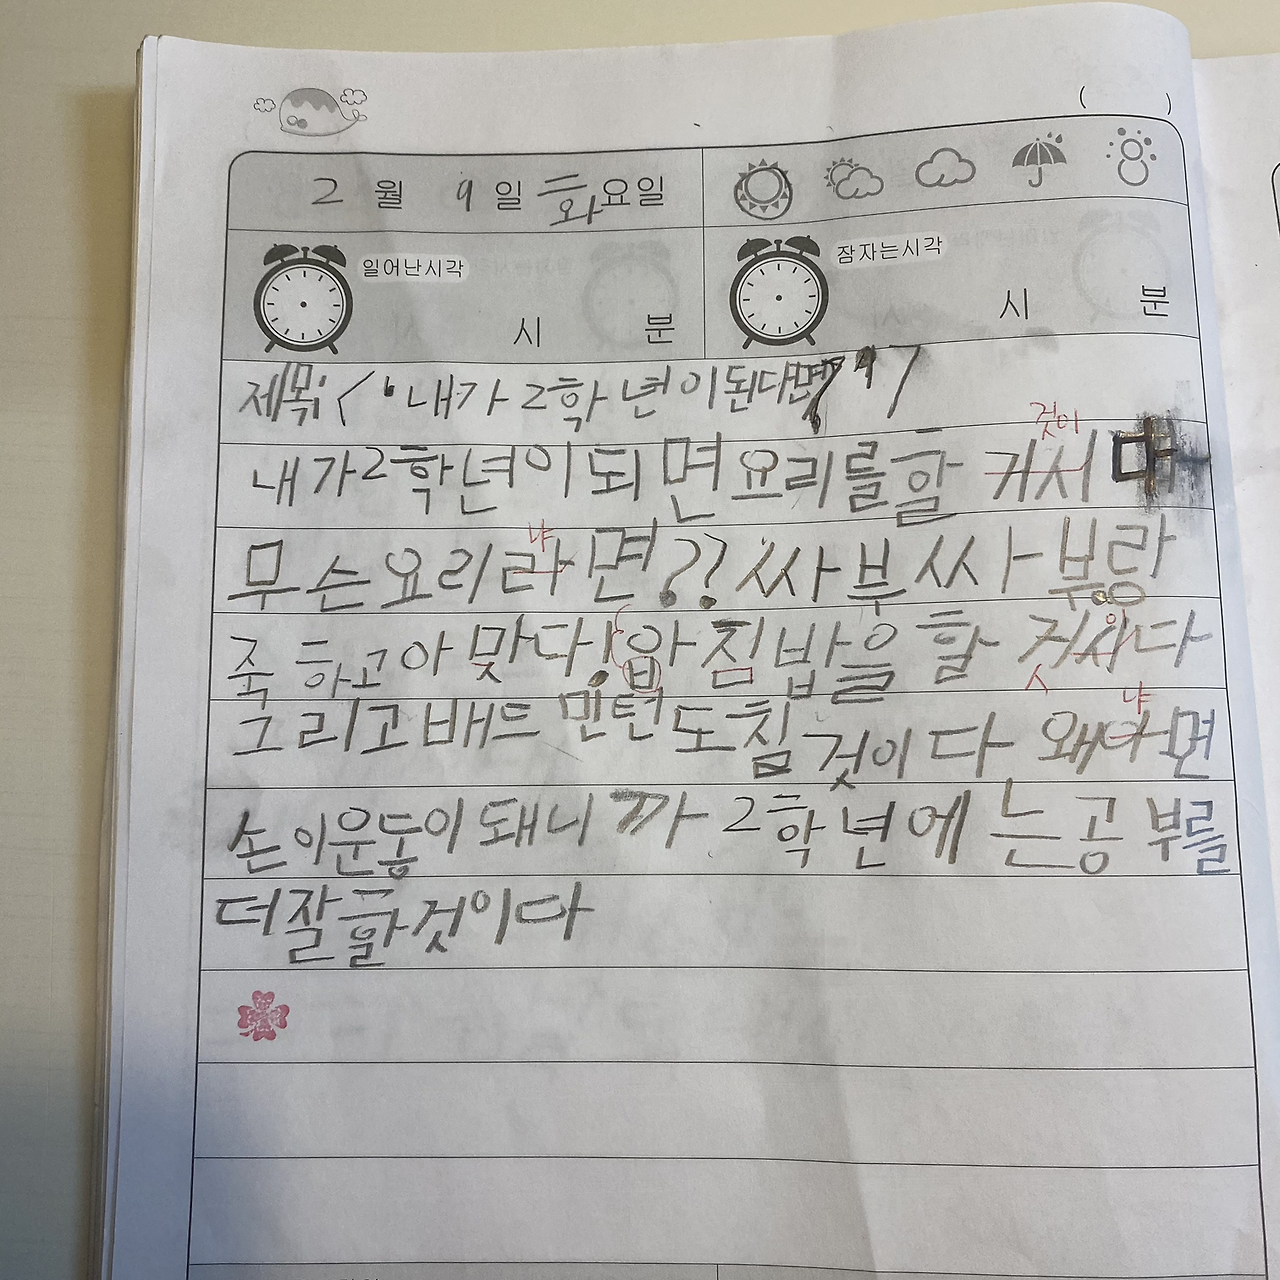 ( )
2 월 9 일 화요일
일어난시각
시 분
잠자는시각
시 분
제목: < '내가 2학년이된다면
것이
내가2학년이되면요리를할 커시
냐
무슨요리라면?? 싸부싸부랑
죽하고아맞다! 아침밥을할 것시다
냐
그리고배드민턴도침것이다 왜냐면
손이운동이돼니까 2학년에는공부를
더잘할것이다